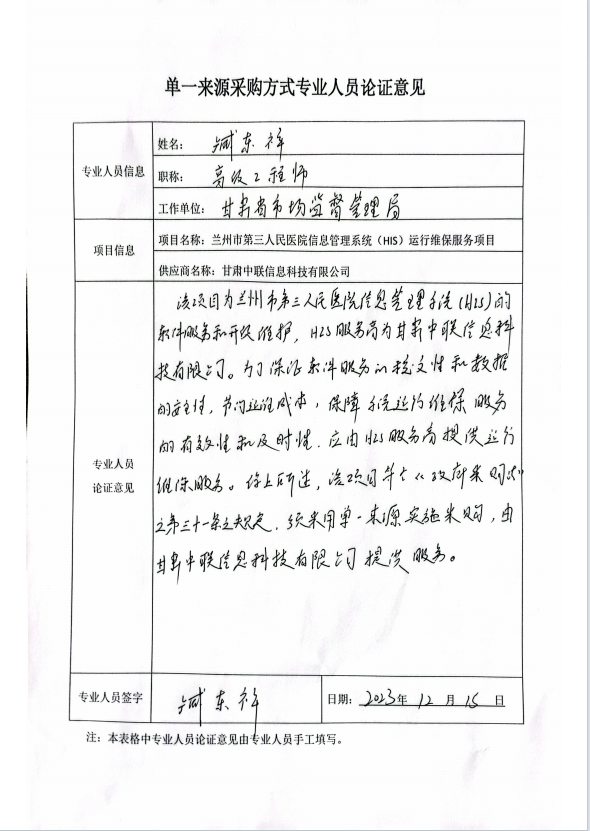 单一来源采购方式专业人员论证意见
专业人员信息
姓名： 臧东祥
职称： 高级工程师
工作单位： 甘肃省市场监督管理局
项目信息
项目名称：兰州市第三人民医院信息管理系统（HIS）运行维保服务项目
供应商名称：甘肃中联信息科技有限公司
专业人员
论证意见
该项目为兰州市第三人民医院信息管理系统(HIS)的
软件服务和升级维护，HIS服务商为甘肃中联信息科
技有限公司。为了保证软件服务的稳定性和数据
的安全性，节约运维成本，保障系统运行维保服务
的有效性和及时性，应由HIS服务商提供运行
维保服务。综上所述，该项目符合《政府采购法》
之第三十一条之规定，须采用单一来源实施采购，由
甘肃中联信息科技有限公司提供服务。
专业人员签字
臧东祥
日期： 2023年 12 月 15 日
注：本表格中专业人员论证意见由专业人员手工填写。